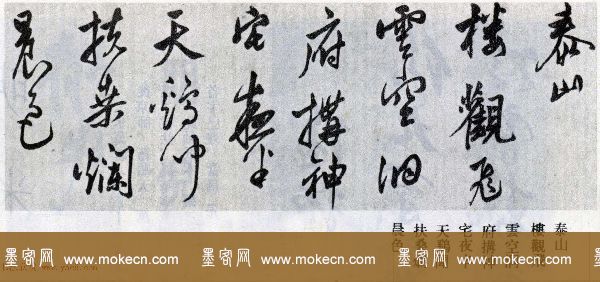 泰山
樓觀飛
雲空洞
府搆神
宅夜半
天鷄叫
扶桑爛
晨色
泰山
樓觀
雲空
府搆
宅夜
天鷄
扶桑
晨色
墨客网 www.mokecn.com 墨客网 www.mokecn.com 墨客网 www.mokecn.com